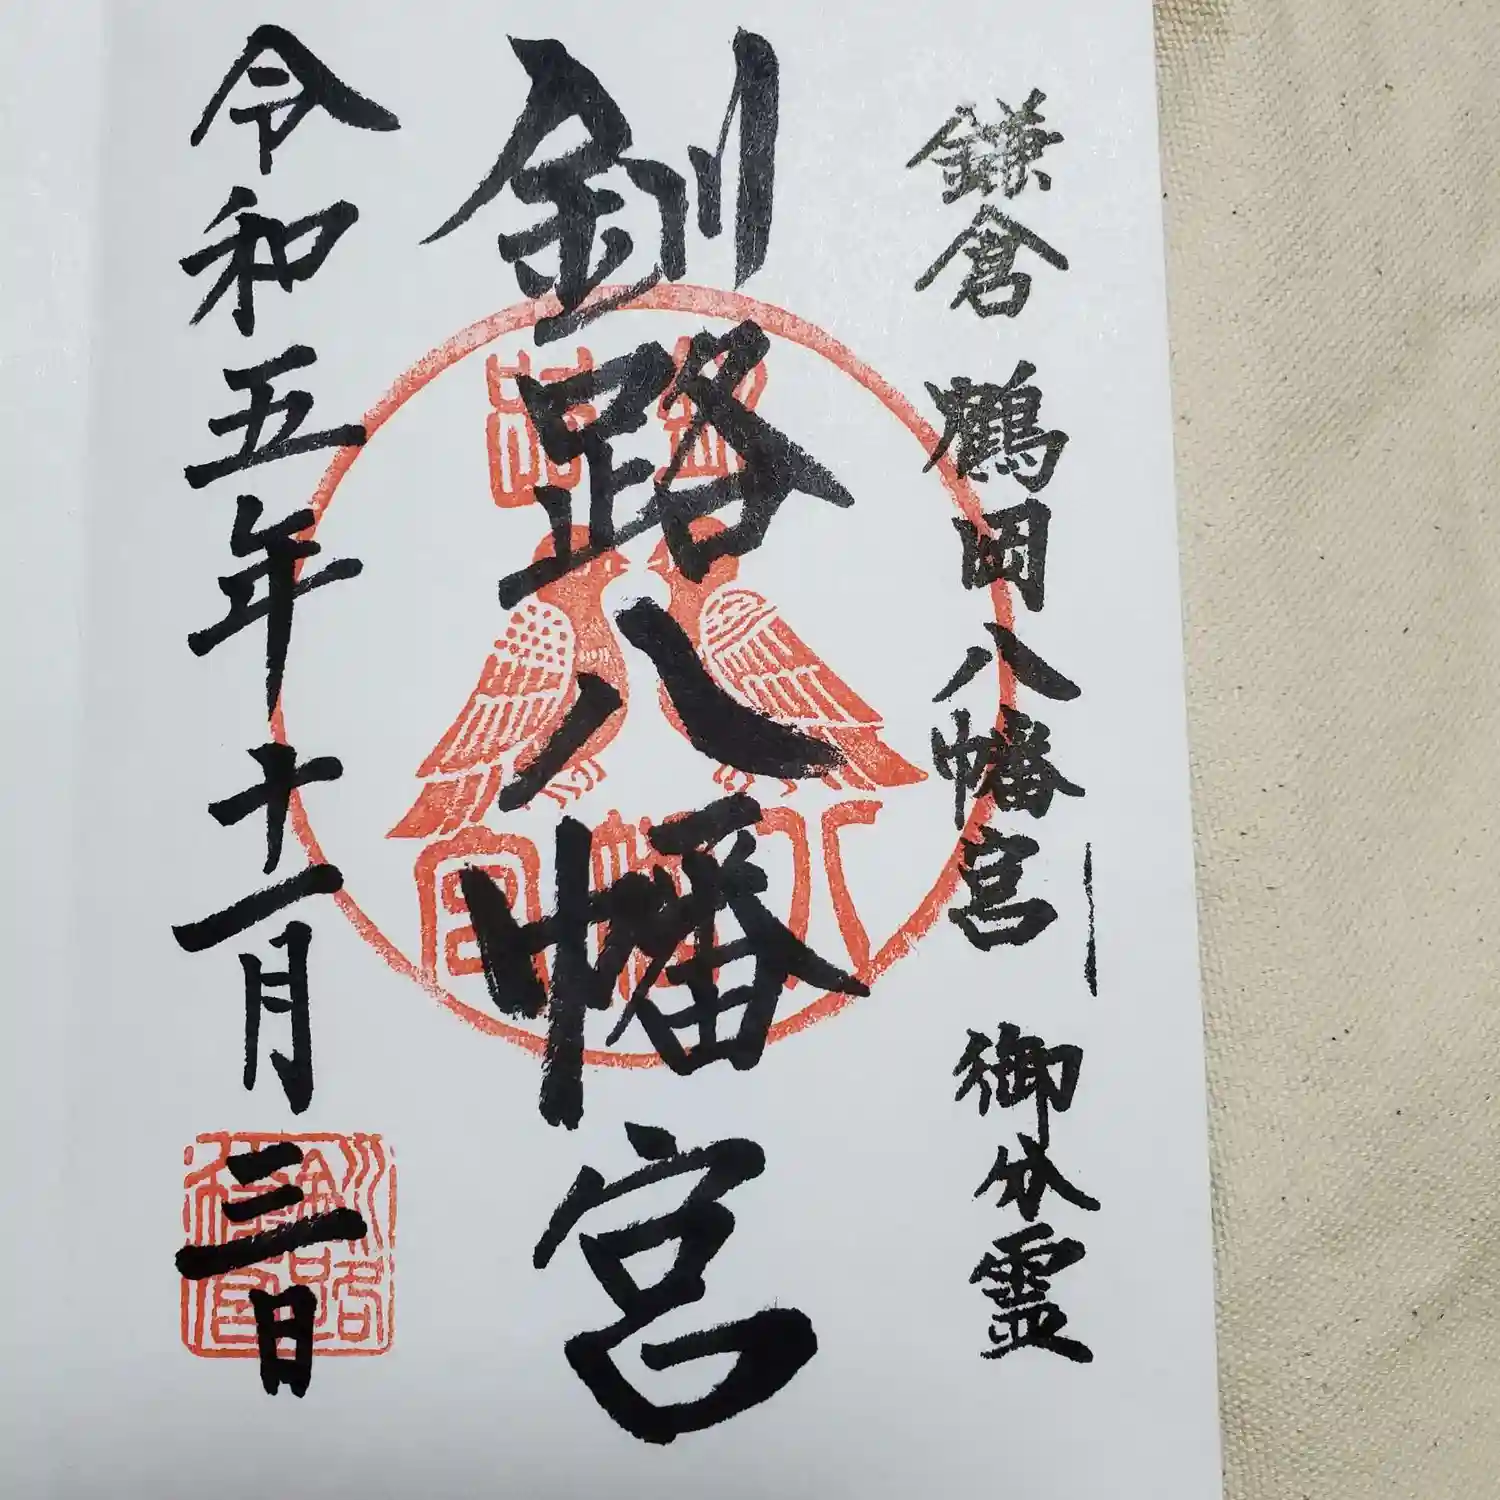 鎌倉 鶴岡八幡宮 御分霊
釧路八幡宮
令和五年十一月三日
釧路
八幡宮